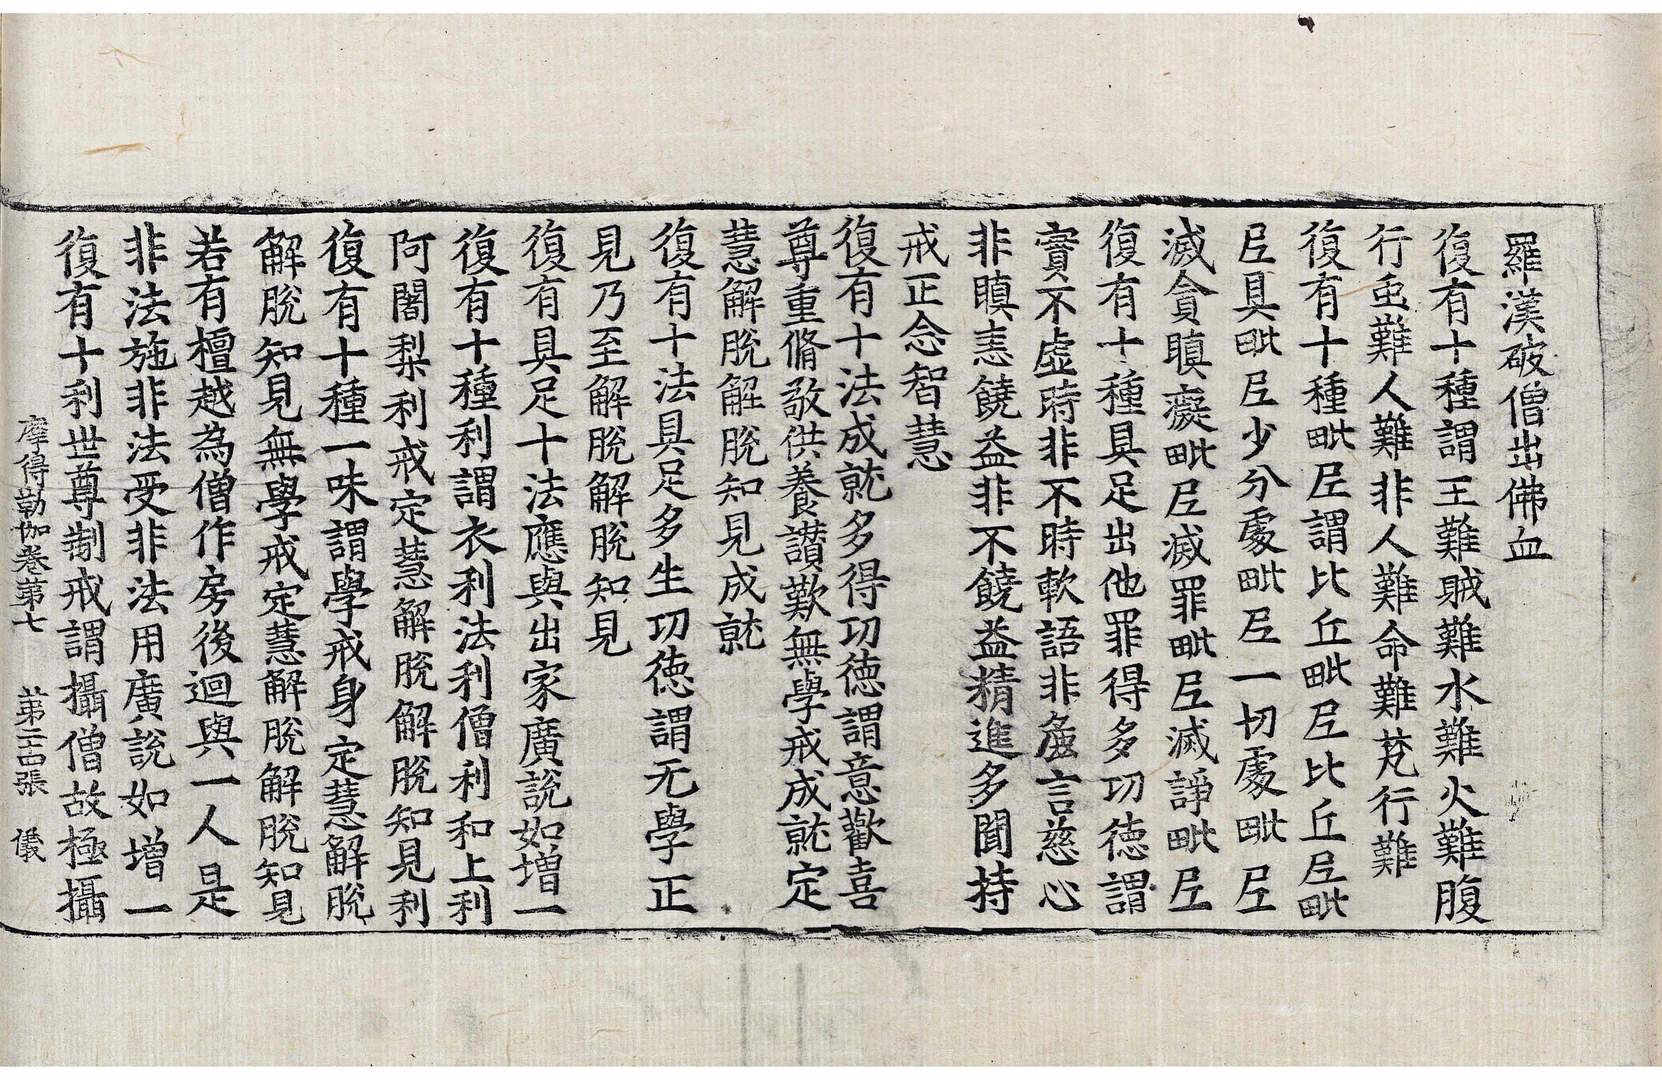 羅漢破僧出佛血
復有十種謂王難賊難水難火難腹
行䖝難人難非人難命難梵行難
復有十種毗尼謂比丘毗尼比丘尼毗
尼具毗尼少分處毗尼一切處毗尼
滅貪瞋癡毗尼滅罪毗尼滅諍毗尼
復有十種具足出他罪得多功德謂
實不虛時非不時軟語非麁言慈心
非瞋恚饒益非不饒益精進多聞持
戒正念智慧
復有十法成就多得功德謂意歡喜
尊重脩敬供養讃歎無學戒成就定
慧解脫解脫知見成就
復有十法具足多生功德謂无學正
見乃至解脫解脫知見
復有具足十法應與出家廣說如增一
復有十種利謂衣利法利僧利和上利
阿闍梨利戒定慧解脫解脫知見利
復有十種一味謂學戒身定慧解脫
解脫知見無學戒定慧解脫解脫知見
若有檀越為僧作房後迴與一人是
非法施非法受非法用廣說如增一
復有十利世尊制戒謂攝僧故極攝
摩得勒伽卷第七 第二十四張 儀